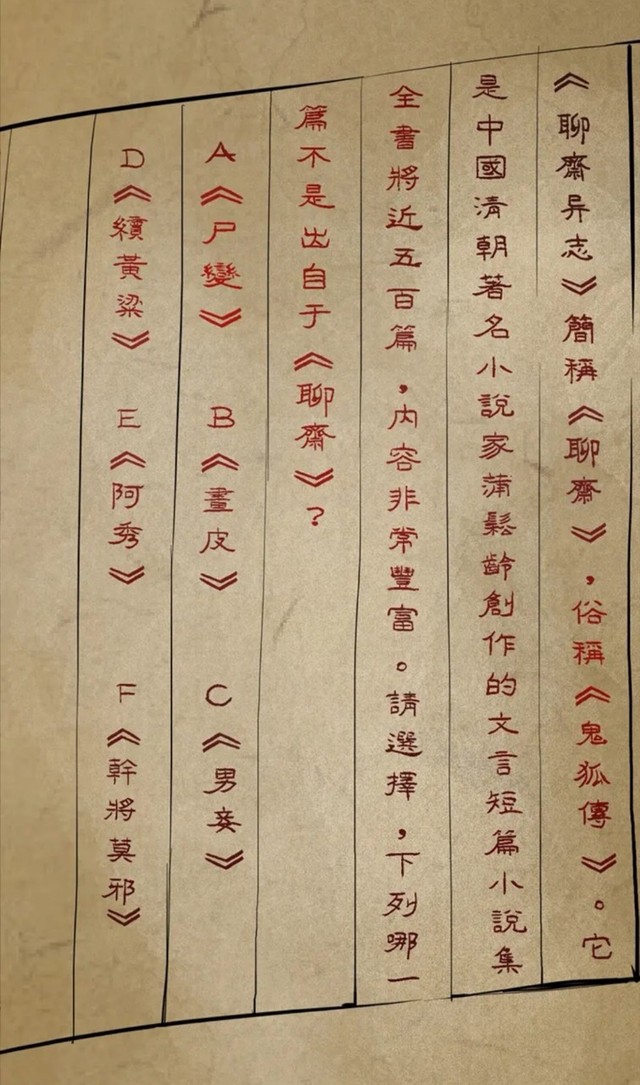 《聊齋异志》簡稱《聊齋》，俗稱《鬼狐傳》。它
是中國清朝著名小說家蒲鬆齡創作的文言短篇小說集
全書將近五百篇，內容非常豐富。請選擇，下列哪一
篇不是出自于《聊齋》？
A《尸變》 B《畫皮》 C《男妾》
D《續黃粱》 E《阿秀》 F《幹將莫邪》